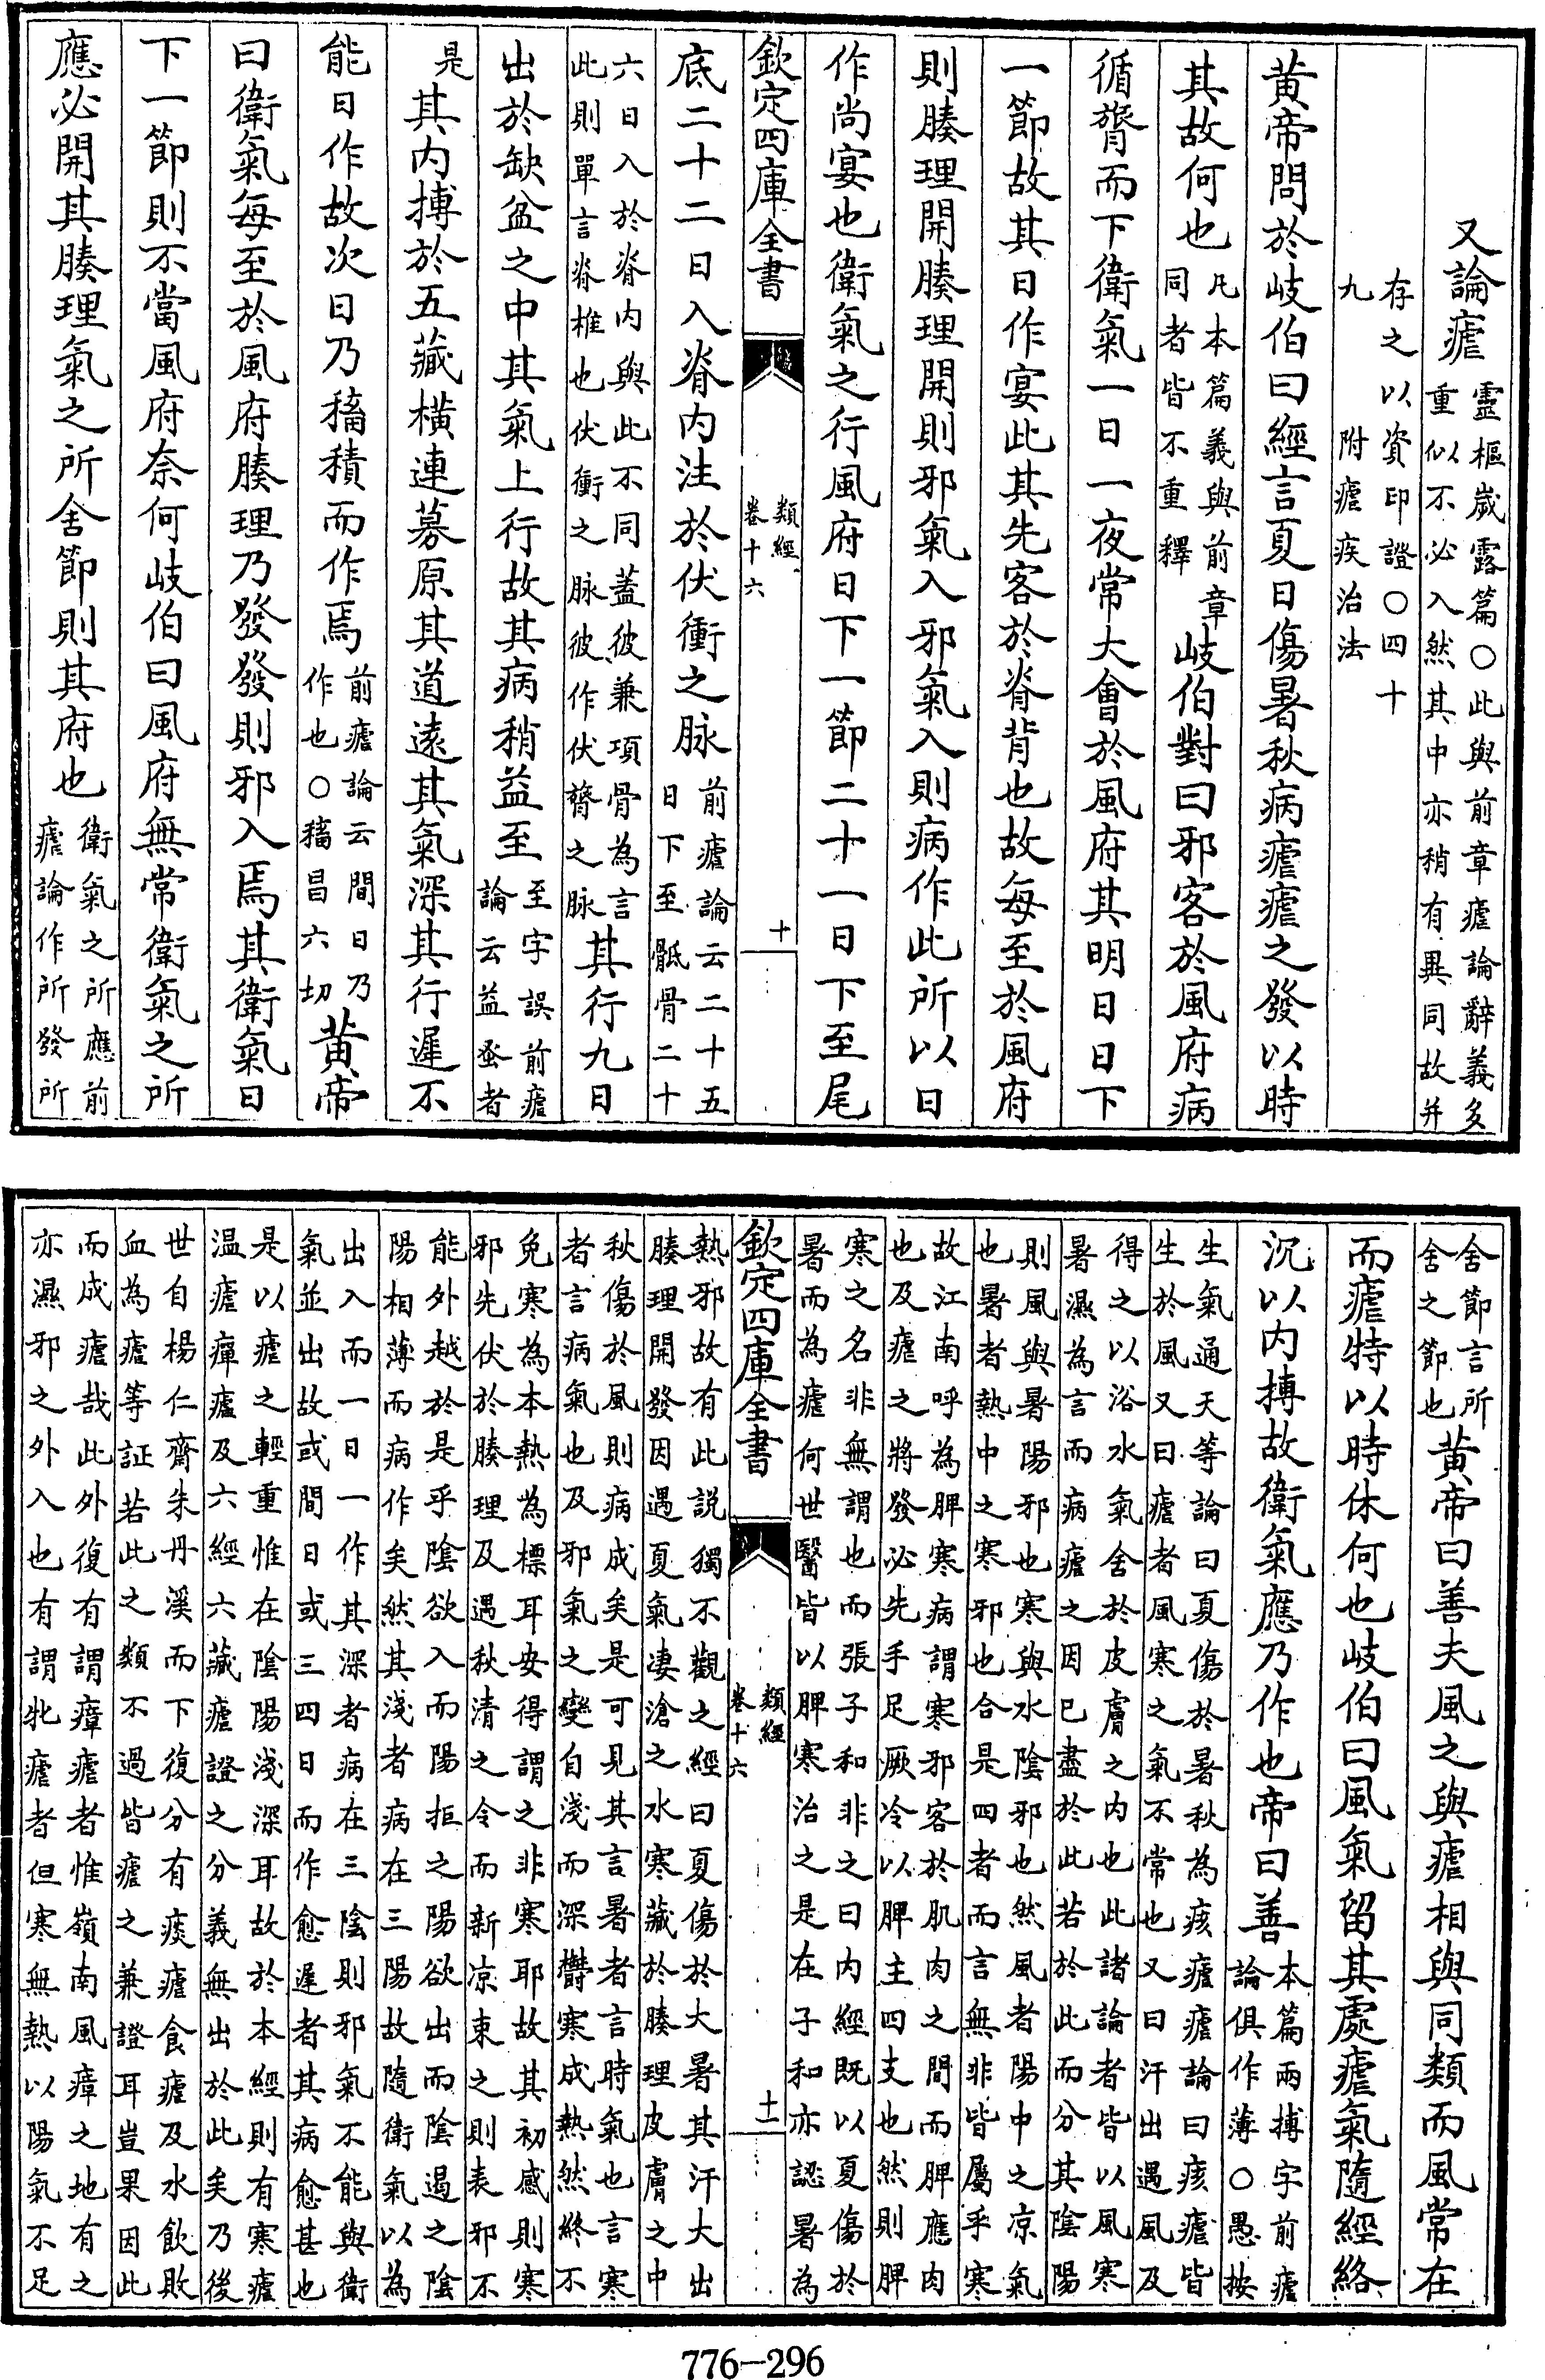 又論瘧
靈樞歲露篇○此與前章瘧論辭義多
重似不必入然其中亦稍有異同故并
存之以資印證○四十
九　附瘧疾治法
黄帝問於岐伯曰經言夏日傷暑秋病瘧瘧之發以時
其故何也
凡本篇義與前章
同者皆不重釋
岐伯對曰邪客於風府病
循膂而下衛氣一日一夜常大會於風府其明日日下
一節故其日作宴此其先客於脊背也故每至於風府
則腠理開腠理開則邪氣入邪氣入則病作此所以日
作尚宴也衛氣之行風府日下一節二十一日下至尾
欽定四庫全書
類經
卷十六
十
底二十二日入脊内注於伏衝之脉
前瘧論云二十五
日下至骶骨二十
六日入於脊内與此不同蓋彼兼項骨為言
此則單言脊椎也伏衝之脉彼作伏膂之脉
其行九日
出於缺盆之中其氣上行故其病稍益至
至字誤前瘧
論云益蚤者
是其内搏於五藏橫連募原其道遠其氣深其行遲不
能日作故次日乃稸積而作焉
前瘧論云間日乃
作也○稸昌六切
黄帝
曰衛氣每至於風府腠理乃發發則邪入焉其衛氣日
下一節則不當風府奈何岐伯曰風府無常衛氣之所
應必開其腠理氣之所舍節則其府也
衛氣之所應前
瘧論作所發所
舍節言所
舍之節也
黄帝曰善夫風之與瘧相與同類而風常在
而瘧特以時休何也岐伯曰風氣留其處瘧氣隨經絡
沉以内搏故衛氣應乃作也帝曰善
本篇兩搏字前瘧
論俱作薄○愚按
生氣通天等論曰夏傷於暑秋為痎瘧瘧論曰痎瘧皆
生於風又曰瘧者風寒之氣不常也又曰汗出遇風及
得之以浴水氣舍於皮膚之内也此諸論者皆以風寒
暑濕為言而病瘧之因已盡於此若於此而分其陰陽
則風與暑陽邪也寒與水陰邪也然風者陽中之凉氣
也暑者熱中之寒邪也合是四者而言無非皆屬乎寒
故江南呼為脾寒病謂寒邪客於肌肉之間而脾應肉
也及瘧之將發必先手足厥冷以脾主四支也然則脾
寒之名非無謂也而張子和非之曰内經既以夏傷於
暑而為瘧何世醫皆以脾寒治之是在子和亦認暑為
欽定四庫全書
類經
卷十六
十一
熱邪故有此説獨不觀之經曰夏傷於大暑其汗大出
腠理開發因遇夏氣凄滄之水寒藏於腠理皮膚之中
秋傷於風則病成矣是可見其言暑者言時氣也言寒
者言病氣也及邪氣之變自淺而深鬱寒成熱然終不
免寒為本熱為標耳安得謂之非寒耶故其初感則寒
邪先伏於腠理及遇秋清之令而新凉束之則表邪不
能外越於是乎陰欲入而陽拒之陽欲出而陰遏之陰
陽相薄而病作矣然其淺者病在三陽故隨衛氣以為
出入而一日一作其深者病在三陰則邪氣不能與衛
氣並出故或間日或三四日而作愈遲者其病愈甚也
是以瘧之輕重惟在陰陽淺深耳故於本經則有寒瘧
温瘧癉瘧及六經六藏瘧證之分義無出於此矣乃後
世自楊仁齋朱丹溪而下復分有痰瘧食瘧及水飲敗
血為瘧等証若此之類不過皆瘧之兼證耳豈果因此
而成瘧哉此外復有謂瘴瘧者惟嶺南風瘴之地有之
亦濕邪之外入也有謂牝瘧者但寒無熱以陽氣不足
776-296